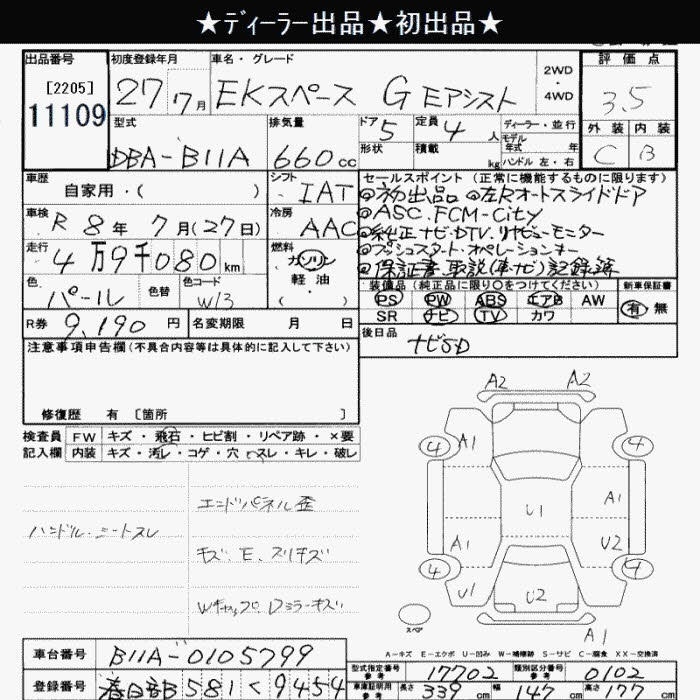 ★ディーラー出品★初出品★
出品番号 初度登録年月 車名・グレード 2WD・4WD 評価点
[2205]
11109
27 7月 EKスペース G Eアシスト 3.5
型式 排気量 ドア 定員 ディーラー・並行 外装 内装
DBA-B11A 660cc 5 4人 モデル年式 年 C B
形状 積載 kg ハンドル 左・右
車歴 シフト セールスポイント (正常に機能するものに限ります)
自家用・( ) IAT ◎初出品 ◎左Rオートスライドドア
車検 冷房 ◎ASC.FCM-City
R 8年 7月(27日) AAC ◎純正ナビ・DTV.リヤビューモニター
走行 燃料 ◎プッシュスタート・オペレーションキー
4万9千080km ガソリン ◎保証書.取説(車・ナビ)記録簿
色 色替 色コード 軽油
パール W13 ・( )
装備品 (純正品に限り○をつけてください) 新車保証書
PS PW ABS エアB AW 有 無
SR ナビ TV カワ
R券 9,190円 名変期限 月 日 後日品
ナビSD
注意事項申告欄(不具合内容等は具体的に記入して下さい)
修復歴 有 [箇所 ]
検査員 FW キズ・飛石・ヒビ割・リペア跡・×要
記入欄 内装 キズ・汚レ・コゲ・穴・スレ・キレ・破レ
ハンドル・シートスレ
エンドパネル歪
キズ、E、スリキズ
Wキャップ、Dミラーキズ
A2 A2
4 A1 4
U1 A1
A1 U2
4 4
U1 U2
スペア
A1
A-キズ E-エクボ U-凹み W-補修跡 S-サビ C-腐食 XX-交換済
車台番号 B11A-0105799
型式指定番号 参考 17702 類別区分番号 参考 0102
登録番号 春日部 581 く 9454
車庫証明用 参考 長さ 339cm 幅 147cm 高さ 177cm